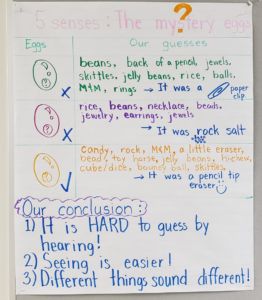 ?
5 senses: The mystery eggs
Eggs Our guesses
beans, back of a pencil, jewels,
skittles, jelly beans, rice, balls,
M&M, rings → It was a paper clip
X
rice, beans, necklace, beads,
jewelry, earrings, jewels
→ It was rock salt
X
Candy, rock, M&M, a little eraser,
bead, toy horse, jelly beans, hi-chew,
cube/dice, bouncy ball, skittles
→ It was a pencil tip
eraser
Our conclusion:
1) It is HARD to guess by
hearing!
2) Seeing is easier!
3) Different things sound different!